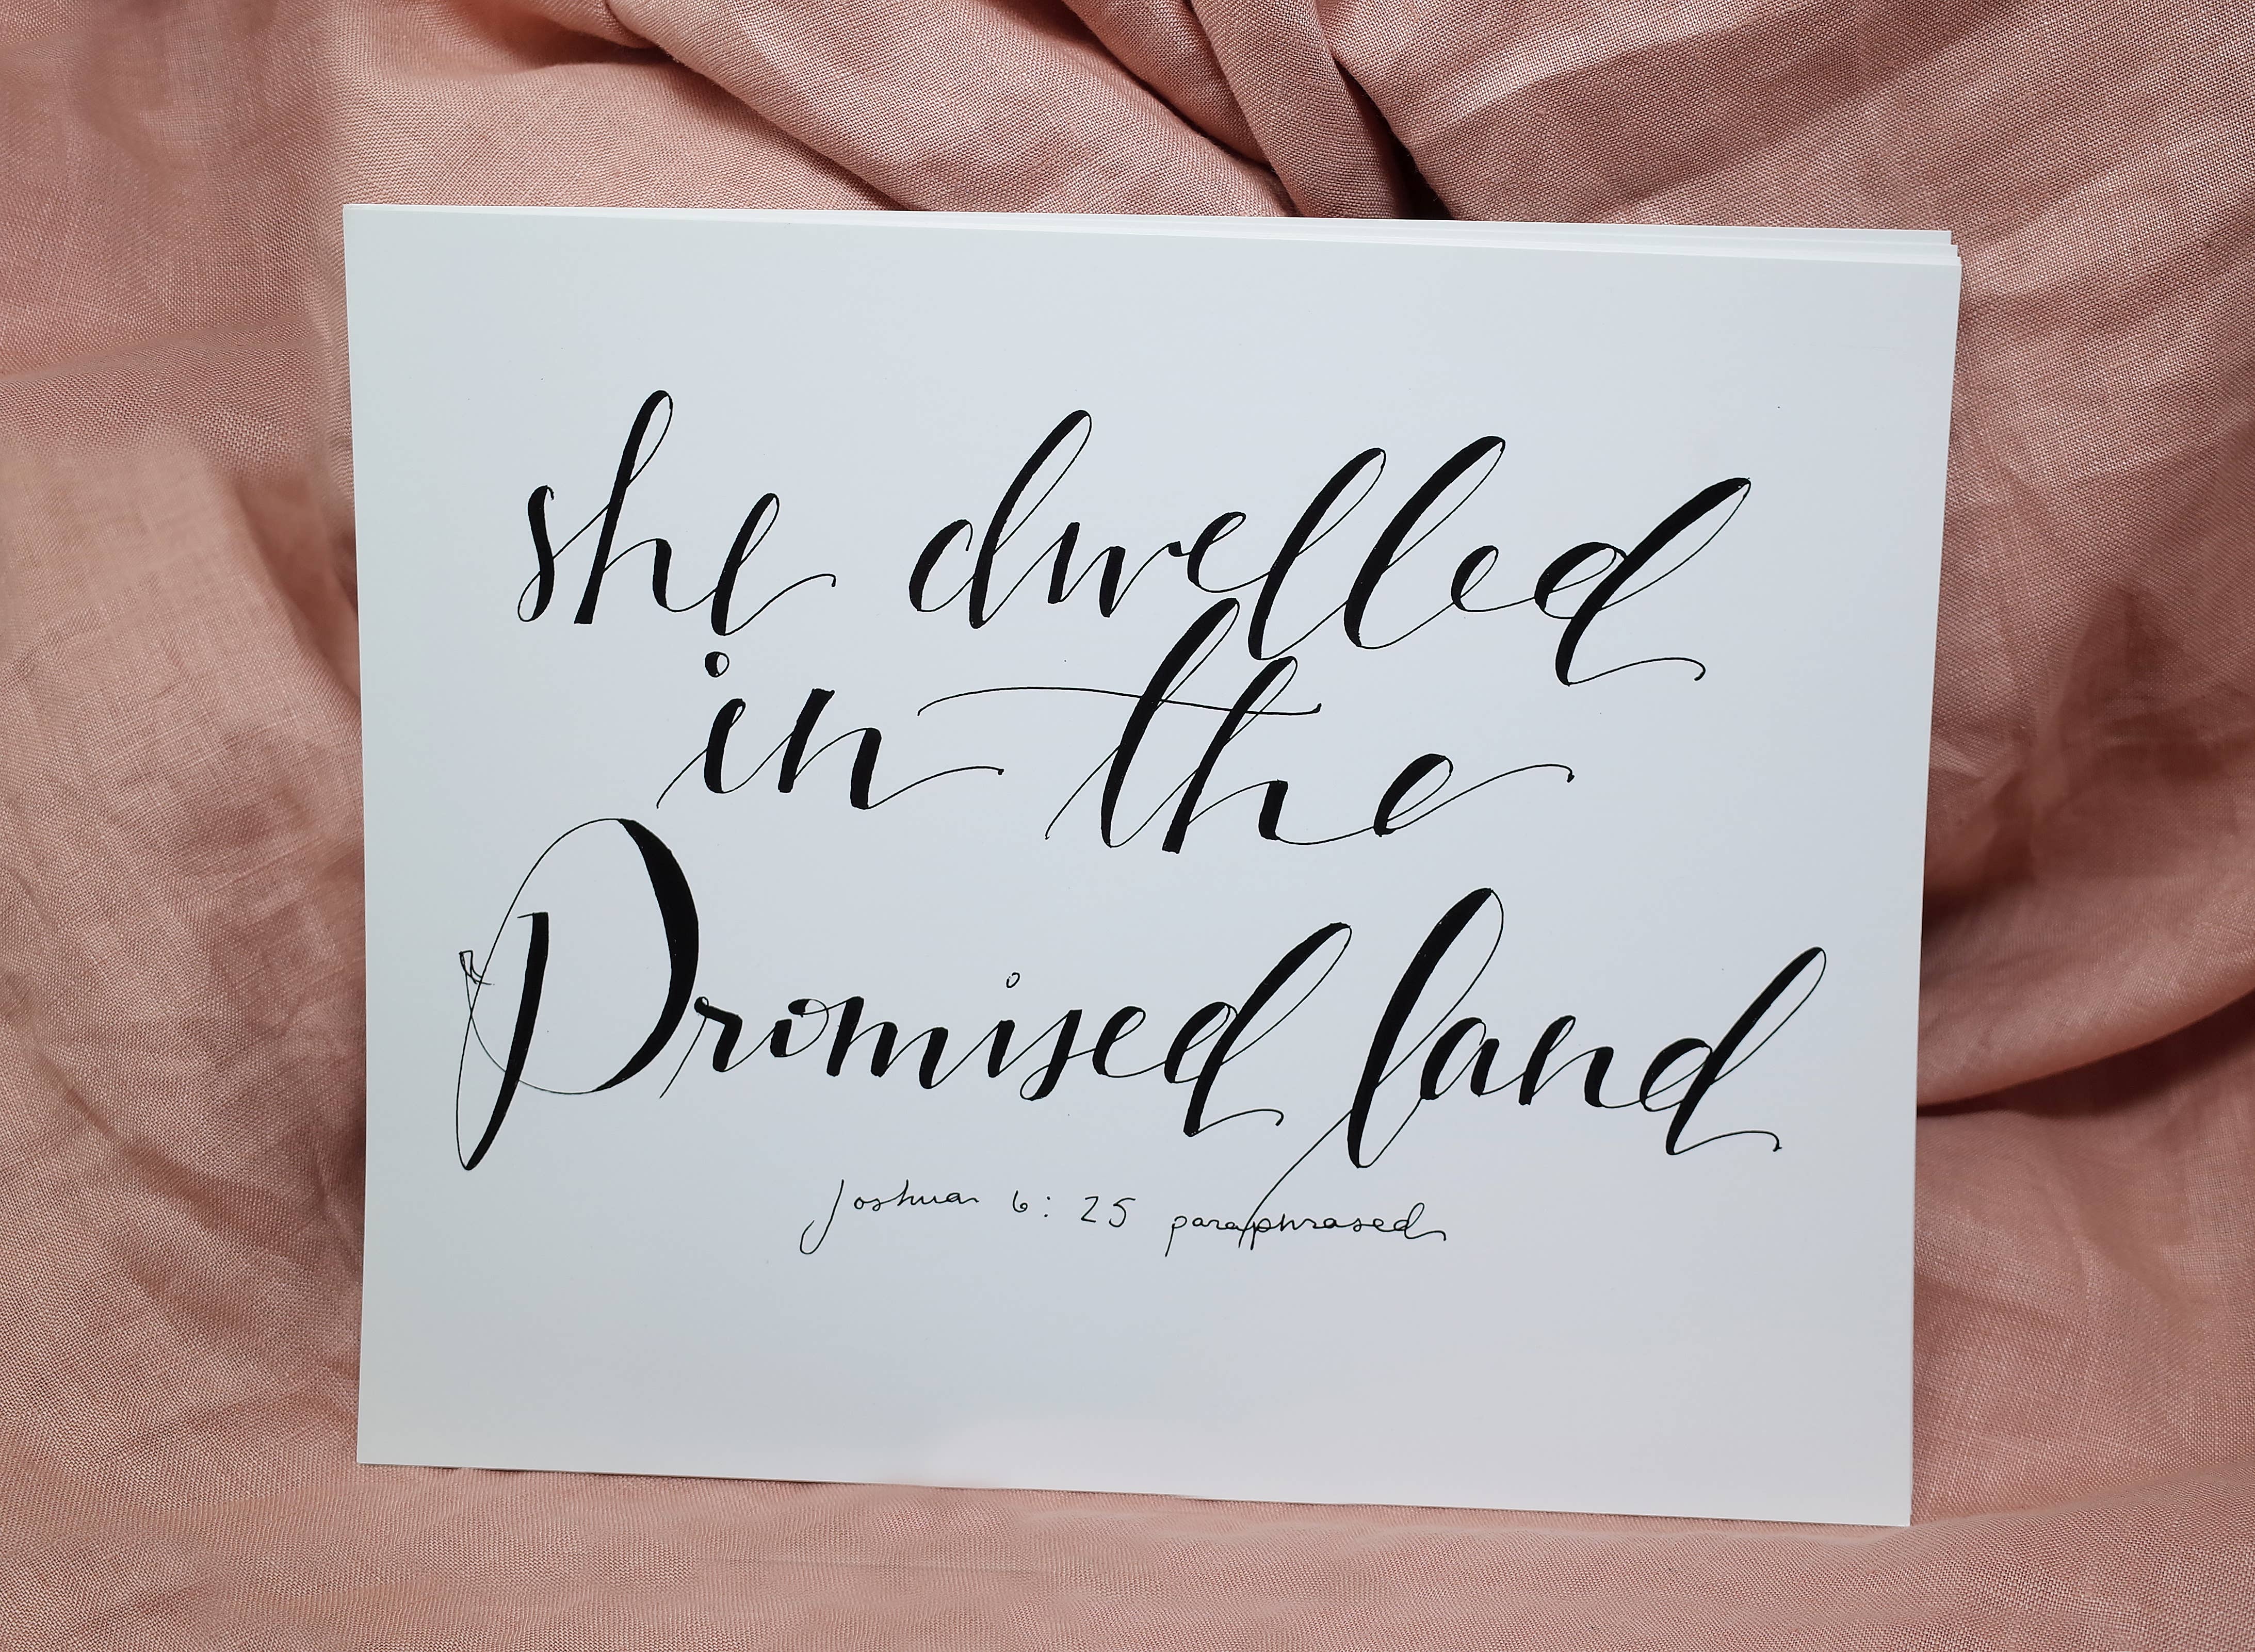 she dwelled
in the
Promised land
Joshua 6:25 paraphrased